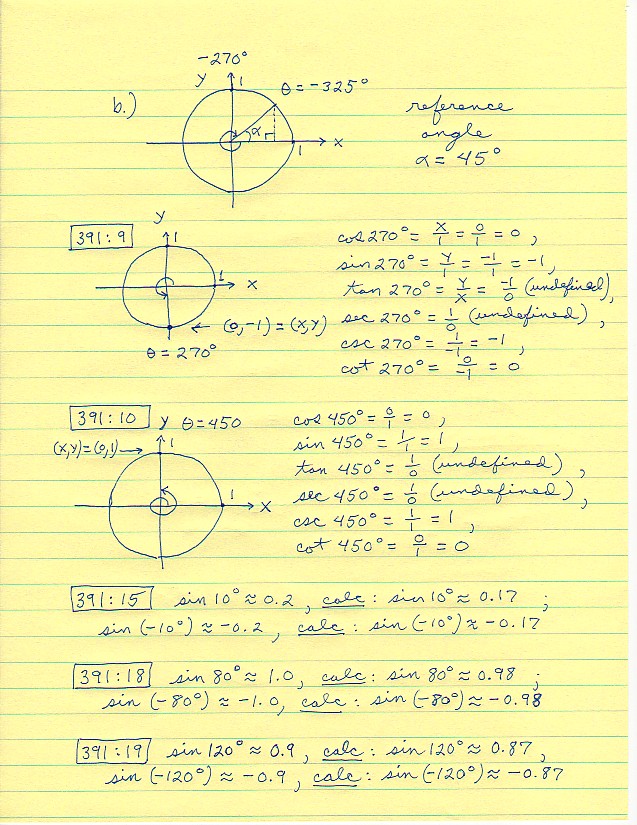 -270°
y 1 θ = -325°
b.) α x
1
reference
angle
α = 45°
391:9
y
1
1 x
(0,-1) = (x,y)
θ = 270°
cos 270° = x/1 = 0/1 = 0 ,
sin 270° = y/1 = -1/1 = -1,
tan 270° = y/x = -1/0 (undefined),
sec 270° = 1/0 (undefined) ,
csc 270° = 1/-1 = -1 ,
cot 270° = 0/-1 = 0
391:10 y θ = 450
(x,y) = (0,1) → 1
1 x
cos 450° = 0/1 = 0 ,
sin 450° = 1/1 = 1 ,
tan 450° = 1/0 (undefined) ,
sec 450° = 1/0 (undefined) ,
csc 450° = 1/1 = 1 ,
cot 450° = 0/1 = 0
391:15 sin 10° ≈ 0.2 , calc : sin 10° ≈ 0.17 ;
sin (-10°) ≈ -0.2 , calc : sin (-10°) ≈ -0.17
391:18 sin 80° ≈ 1.0 , calc : sin 80° ≈ 0.98 ;
sin (-80°) ≈ -1.0, calc : sin (-80°) ≈ -0.98
391:19 sin 120° ≈ 0.9 , calc : sin 120° ≈ 0.87 ,
sin (-120°) ≈ -0.9 , calc : sin (-120°) ≈ -0.87